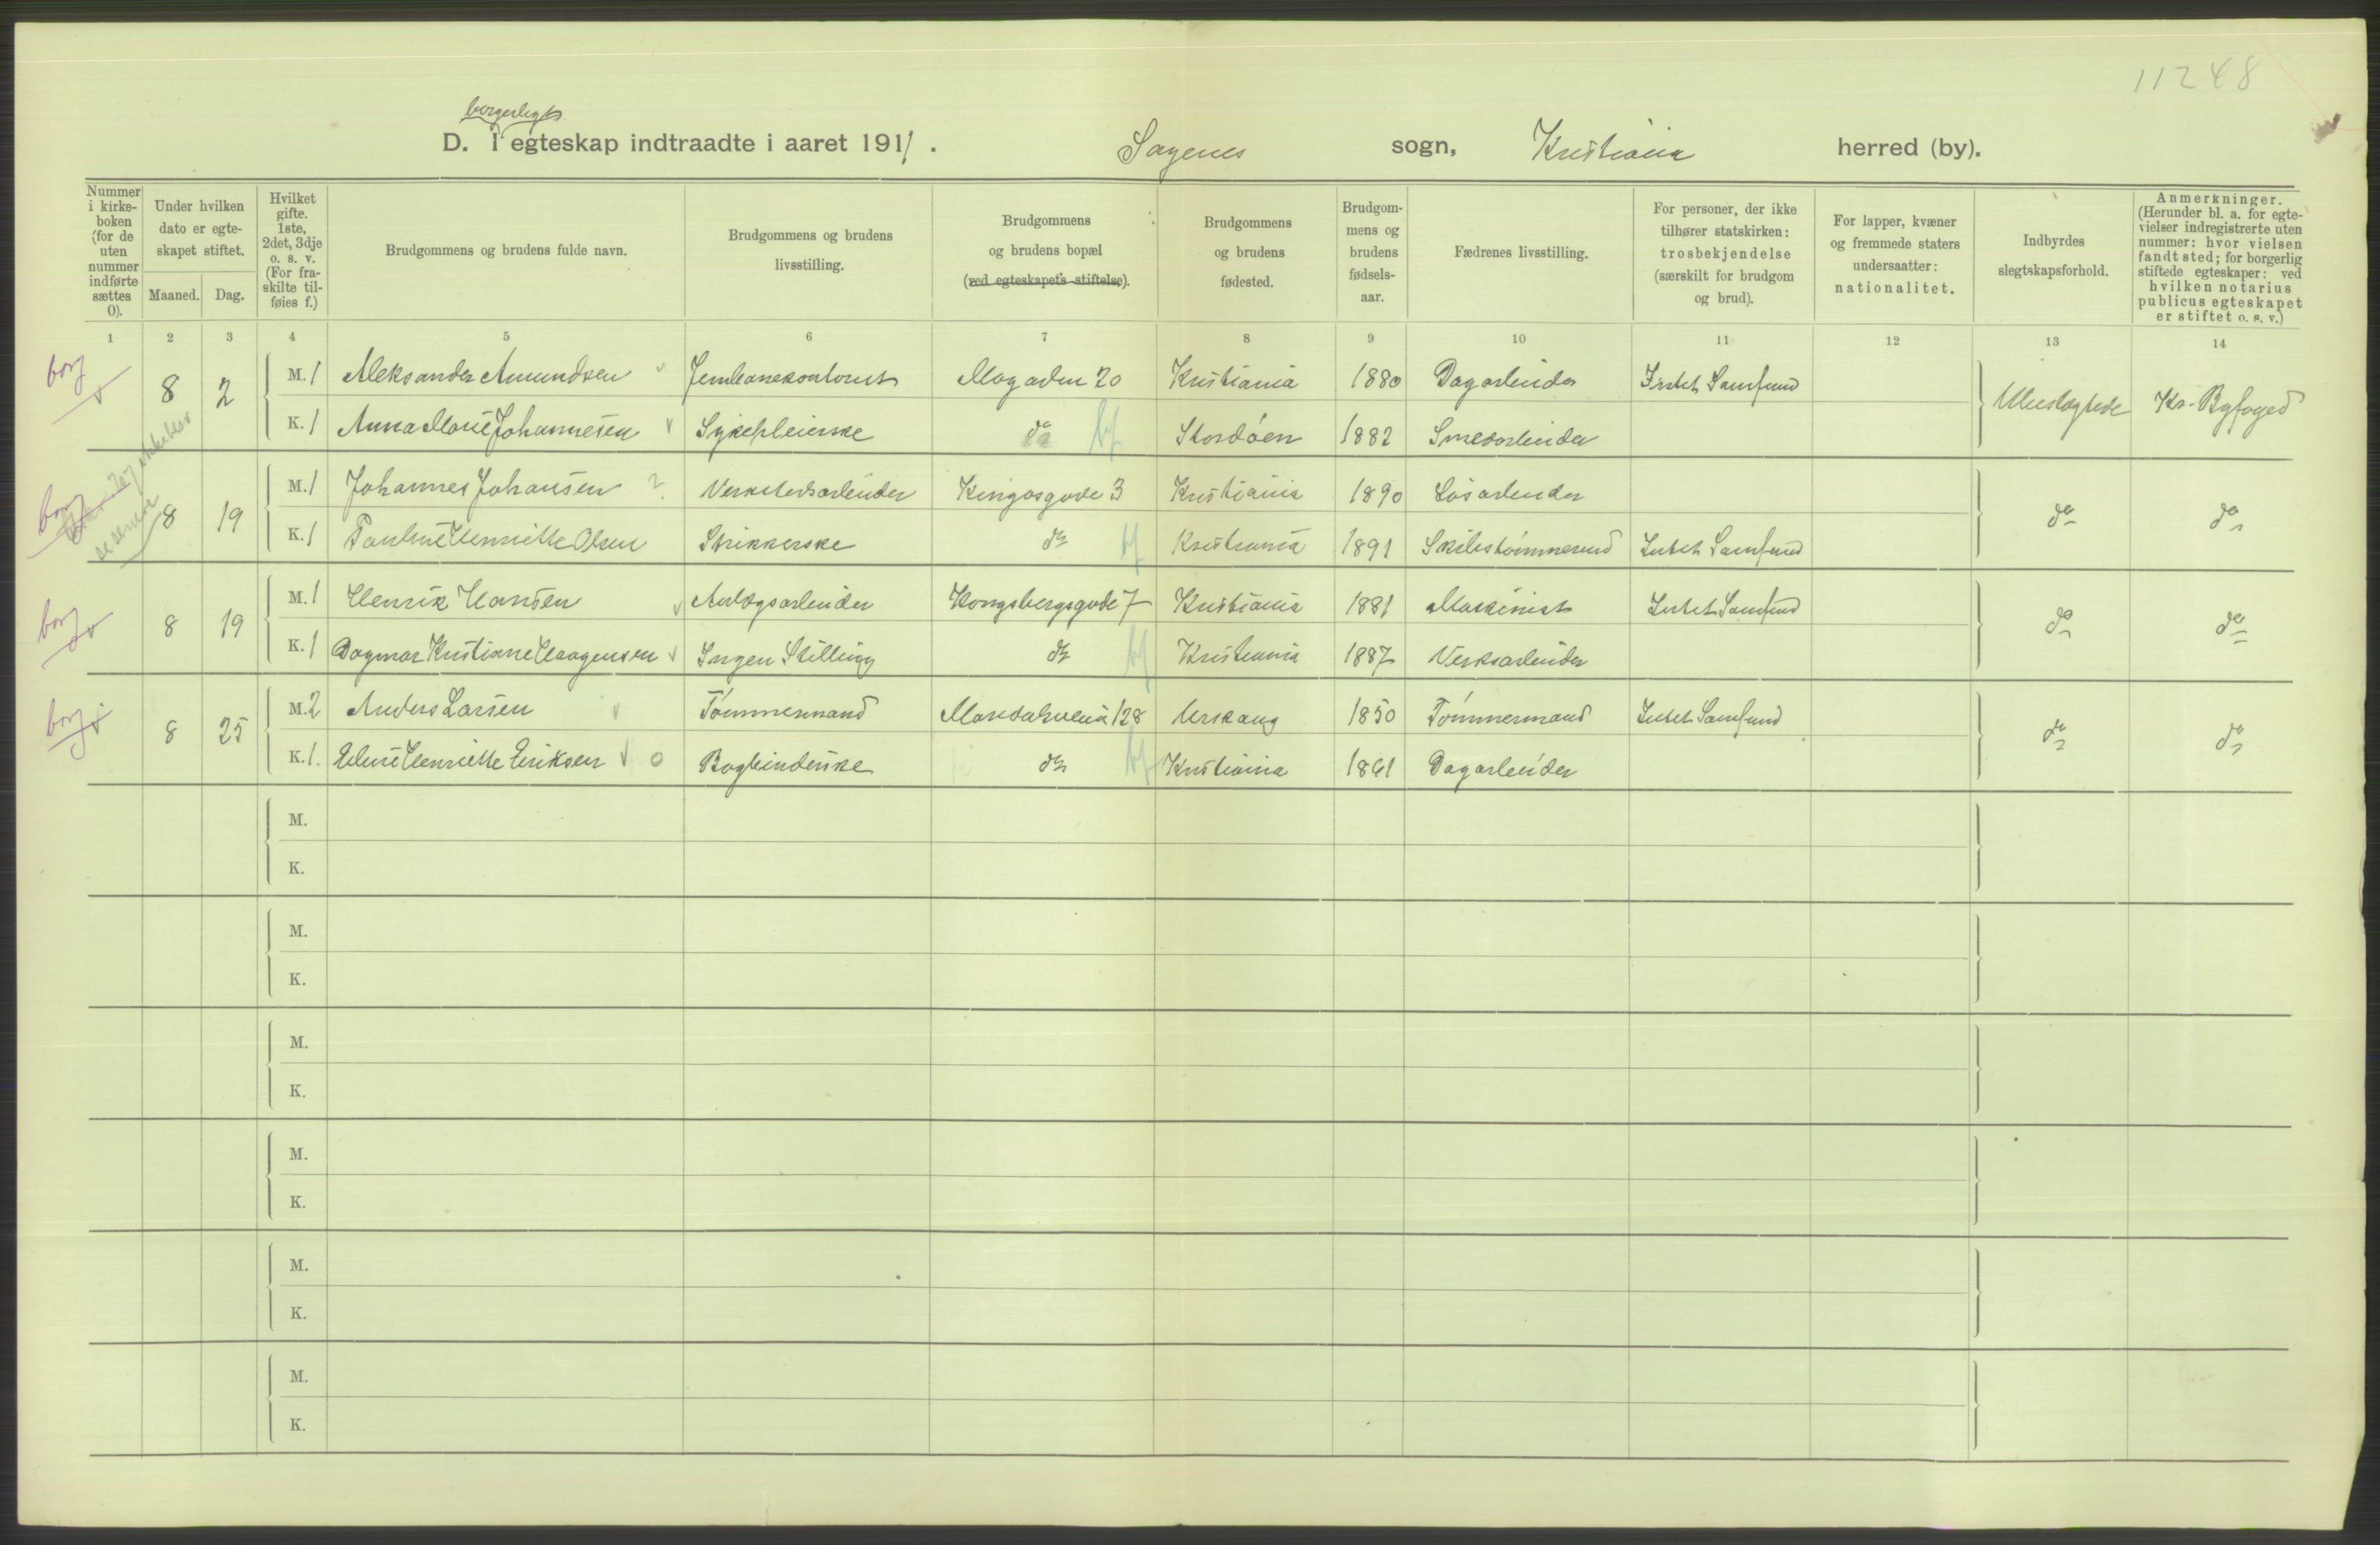 11248
borgerligt
D. I egteskap indtraadte i aaret 1911. Sagenes sogn, Kristiania herred (by).
Nummer i kirkeboken (for de uten nummer indførte sættes 0).
Under hvilken dato er egteskapet stiftet.
Maaned. Dag.
Hvilket gifte. 1ste, 2det, 3dje o. s. v. (For fraskilte tilføies f.)
Brudgommens og brudens fulde navn.
Brudgommens og brudens livsstilling.
Brudgommens og brudens bopæl (ved egteskapets stiftelse).
Brudgommens og brudens fødested.
Brudgommens og brudens fødselsaar.
Fædrenes livsstilling.
For personer, der ikke tilhører statskirken: trosbekjendelse (særskilt for brudgom og brud).
For lapper, kvæner og fremmede staters undersaatter: nationalitet.
Indbyrdes slegtskapsforhold.
Anmerkninger. (Herunder bl. a. for egtevielser indregistrerte uten nummer: hvor vielsen fandt sted; for borgerlig stiftede egteskaper: ved hvilken notarius publicus egteskapet er stiftet o. s. v.)
1 2 3 4 5 6 7 8 9 10 11 12 13 14
borg 8 2 M. 1 Aleksander Amundsen Jernbanekontorist Mogaden 20 Kristiania 1880 Dagarbeider Intet Samfund Ubeslægtede Kr. Byfoged
K. 1 Anna Marie Johannesen Sykepleierske do bf Stordöen 1882 Smedarbeider
borg 8 19 M. 1 Johannes Johansen ? Verkstedsarbeider Kingosgade 3 Kristiania 1890 Løsarbeider do do
K. 1 Pauline Henriette Olsen Strikkerske do bf Kristiania 1891 Skibstømmermd Intet Samfund
borg 8 19 M. 1 Henrik Hansen Anlægsarbeider Kongsbergsgade 7 Kristiania 1881 Maskinist Intet Samfund do do
K. 1 Dagmar Kristiane Haagensen Ingen Stilling do bf Kristiania 1887 Verksarbeider
borg 8 25 M. 2 Anders Larsen Tømmermand Maridalsveien 128 Urskaug 1850 Tømmermand Intet Samfund do do
K. 1. Eline Henriette Eriksen o Bogbinderske do bf Kristiania 1861 Dagarbeider
M.
K.
M.
K.
M.
K.
M.
K.
M.
K.
M.
K.